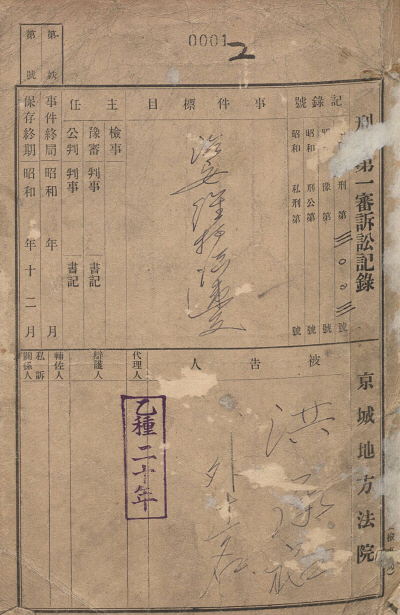 0001
2
刑第一審訴訟記錄
京城地方法院
記錄號
刑第三〇〇三號
昭和 豫第 號
昭和 刑公第 號
昭和 私刑第 號
事件標目
治安維持法違反
主任
檢事
豫審判事 書記
公判判事 書記
事件終局昭和 年 月
保存終期昭和 年十二月
第 號
被告人
洪
外
代理人
辯護人
輔佐人
私訴關係人
乙種二十年